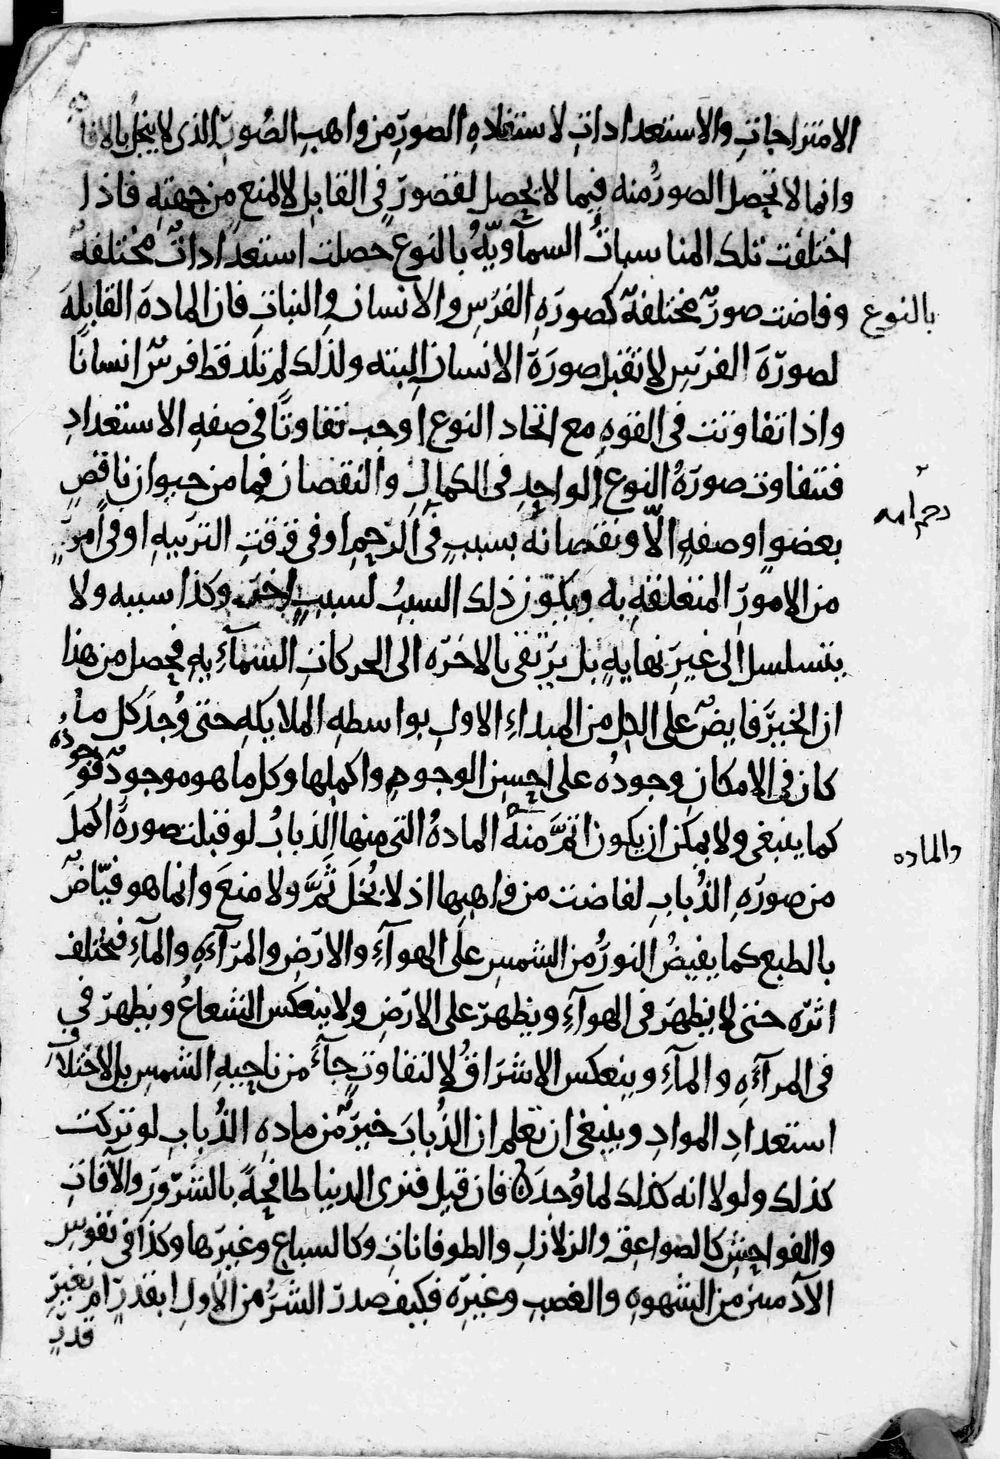 الامتزاجات والاستعدادات لاستفادهِ الصورِ من واهبِ الصُورِ الذى لا يبخل بالافا
وانما لا تحصل الصورُ منه فيما لا يحصل لقصورٍ فى القابلِ لا لمنعٍ من جهتهِ فاذا
اختلفت تلك المناسباتُ السمآويّهُ بالنوعِ حصلت استعداداتٌ مختلفهٌ
بالنوع وفاضت صورٌ مختلفهٌ كصورَهِ الفرسِ والانسانِ والنباتِ فان المادهَ القابلهَ
لصورَهِ الفرسِ لا تقبل صورَهَ الانسانِ البته ولذلك لم تلد قط فرسٌ انسانًا
واذا تفاوتت فى القوهِ مع اتحاد النوع اوجب تفاوتًا فى صفهِ الاستعدادِ
فتتفاوت صورَهُ النوعِ الواحدِ فى الكمالِ والنقصان فما من حيوانٍ ناقصٍ
بعضوٍ او صفهٍ الّا ونقصانُه بسببٍ فى الرحِم او فى وقتِ التربيهِ او فى امرٍ
رحم امه
من الامورِ المتعلقهِ به ويكون ذلك السببُ لسببٍ اخرَ وكذا سببه ولا
يتسلسل الى غيرِ نهايهٍ بل يرتقى بالاخرَه الى الحركاتِ السمآءيهِ فحصل من هذا
ان الخيرَ فايضٌ على الكل من المبداءِ الاولِ بواسطهِ الملايكهِ حتى وُجدَ كل ما
كان فى الامكانِ وجودُه على احسنِ الوجوهِ واكملِها وكل ما هو موجودٌ فوجودُه
كما ينبغى ولا يمكن ان يكون اتمَّ منهُ المادهُ التى منها الذبابُ لو قبلت صورهً اكملَ
والماده
من صورَهِ الذُبابِ لفاضت من واهبِها اذ لا بُخلَ ثَمَّ ولا منعَ وانما هو فيّاضٌ
بالطبع كما يفيضُ النورُ من الشمسِ على الهوآءِ والارضِ والمرآءهِ والمآءِ فيختلف
اثرُه حتى لا يظهرَ فى الهوآءِ ويظهرَ على الارضِ ولا ينعكس الشعاعُ ويظهرَ فى
فى المرآءَهِ والمآءِ وينعكس الاشراقُ لا لتفاوتٍ جآءَ من ناحيهِ الشمسِ بل لاختلافِ
استعدادِ الموادِ وينبغى ان تعلم ان الذُبابَ خيرٌ من مادهِ الذُبابِ لو تركت
كذلك ولولا انه كذلك لما وُجدَ فان قيل فنرى الدنيا طافحهً بالشرورِ والآفاتِ
والفواحشِ كالصواعقِ والزلازلِ والطوفاناتِ وكالسباع وغيرِها وكذا فى نفوسِ
الآدميين من الشهوهِ والغضبِ وغيرِه فكيف صدرَ الشرُ من الاولِ ابقدرٍ ام بغيرِ
قدرٍ